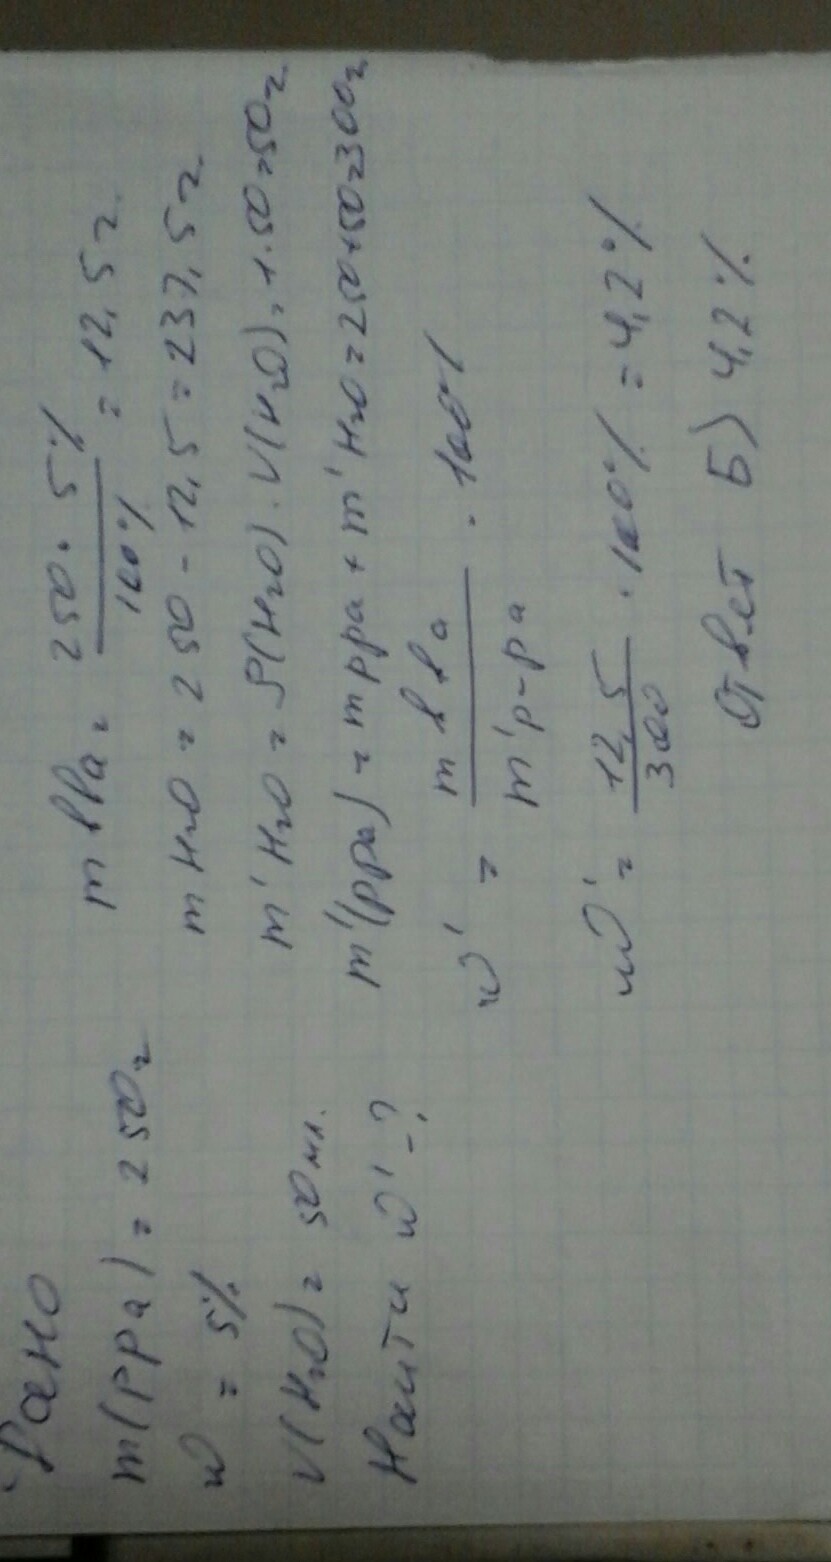 Дано
m(рра) = 250г
w = 5%
V(H₂O) = 50мл.
Найти w' - ?
m вва = 250 · 5% / 100% = 12,5г
m H₂O = 250 - 12,5 = 237,5г
m' H₂O = ρ(H₂O) · V(H₂O) = 1 · 50 = 50г
m'(рра) = m рра + m' H₂O = 250 + 50 = 300г
w' = m в ва / m' р-ра · 100%
w' = 12,5 / 300 · 100% = 4,2%
Ответ Б) 4,2%